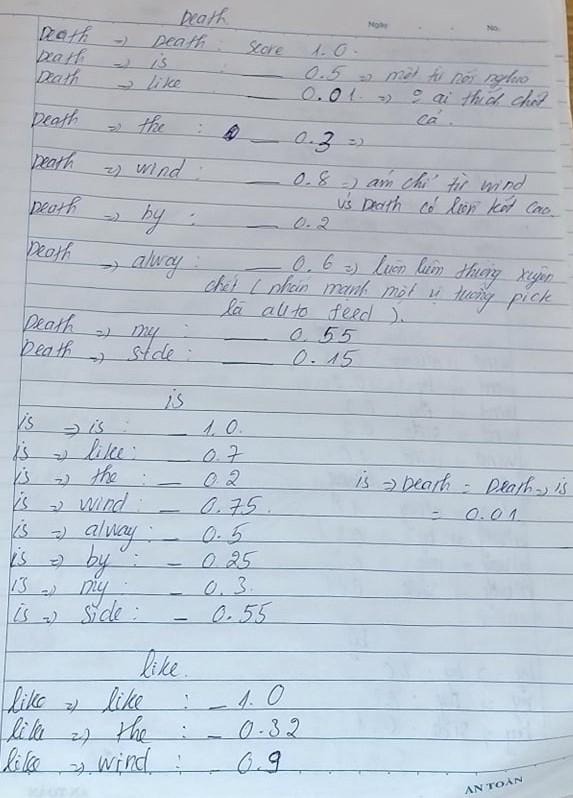 Death
Ngày No.
Death => Death : Score 1.0.
Death => is : — 0.5 => một từ nói nghĩa
Death => like : — 0.01. => ai thích chết
cả.
Death => the : — 0.3 =>
Death => wind : — 0.8 => ám chỉ từ wind
vs Death có liên kết cao.
Death => by : — 0.2
Death => alway : — 0.6 => luôn luôn thường xuyên
chết (nhấn mạnh một vị tướng pick
là auto feed).
Death => my : — 0.55
Death => side : — 0.15
is
is => is : — 1.0.
is => like : — 0.7
is => the : — 0.2
is => wind : — 0.75.
is => Death = Death => is
= 0.01
is => alway : — 0.5
is => by : — 0.25
is => my : — 0.3.
is => side : — 0.55
like.
like => like : — 1.0
like => the : — 0.32
like => wind : — 0.9
AN TOÀN